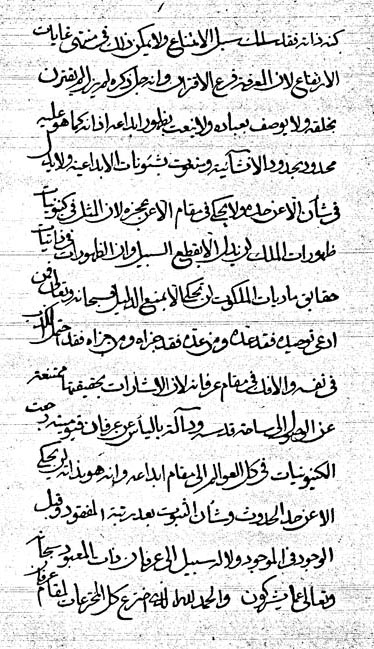 كنه ذاته فقد سلك سبل الامتناع ولا يمكن ذلك في منتهى غايات
الارتفاع لان المعرفة فرع الاقتران وانه جل ذكره لم يزل لم يقترن
بخلقه ولا يوصف بعباده ولا ينعت بظهور ابداعه اذ انه كما هو عليه
محدود بحدود الانشآئية ومنعوت بشئونات الابداعية ولا يدل
في شأن الا عن حده ولا يحكي في مقام الا عن عجزه ولان المثل في كينونيات
ظهورات الملك لن يدل الا بقطع السبيل وان الظهورات في ذاتيات
حقايق ماديات الملكوت لن تحكي الا بمنع الدليل فسبحانه وتعالى فمن
ادعى توحيده فقد عده ومن عده فقد جزاه ومن جزاه فقد احتمل
في نفسه والافك في مقام عرفانه لان الاشارات بحقيقتها ممتنعة
عن الوصول الى ساحة قدسه ودآلة بالياس عن عرفان قيوميته رجعت
الكينونيات في كل العوالم الى مقام ابداعه وانه هو بذاته لن يحكي
الا عن حد الحدوث وشأن الثبوت بعد رتبة المفقود وقبل
الوجود في الموجود ولا له سبيل الى عرفان ذات المعبود سبحانه
وتعالى عما يشركون والحمد لله الذي اخترع كل المخترعات لمقام عرفان